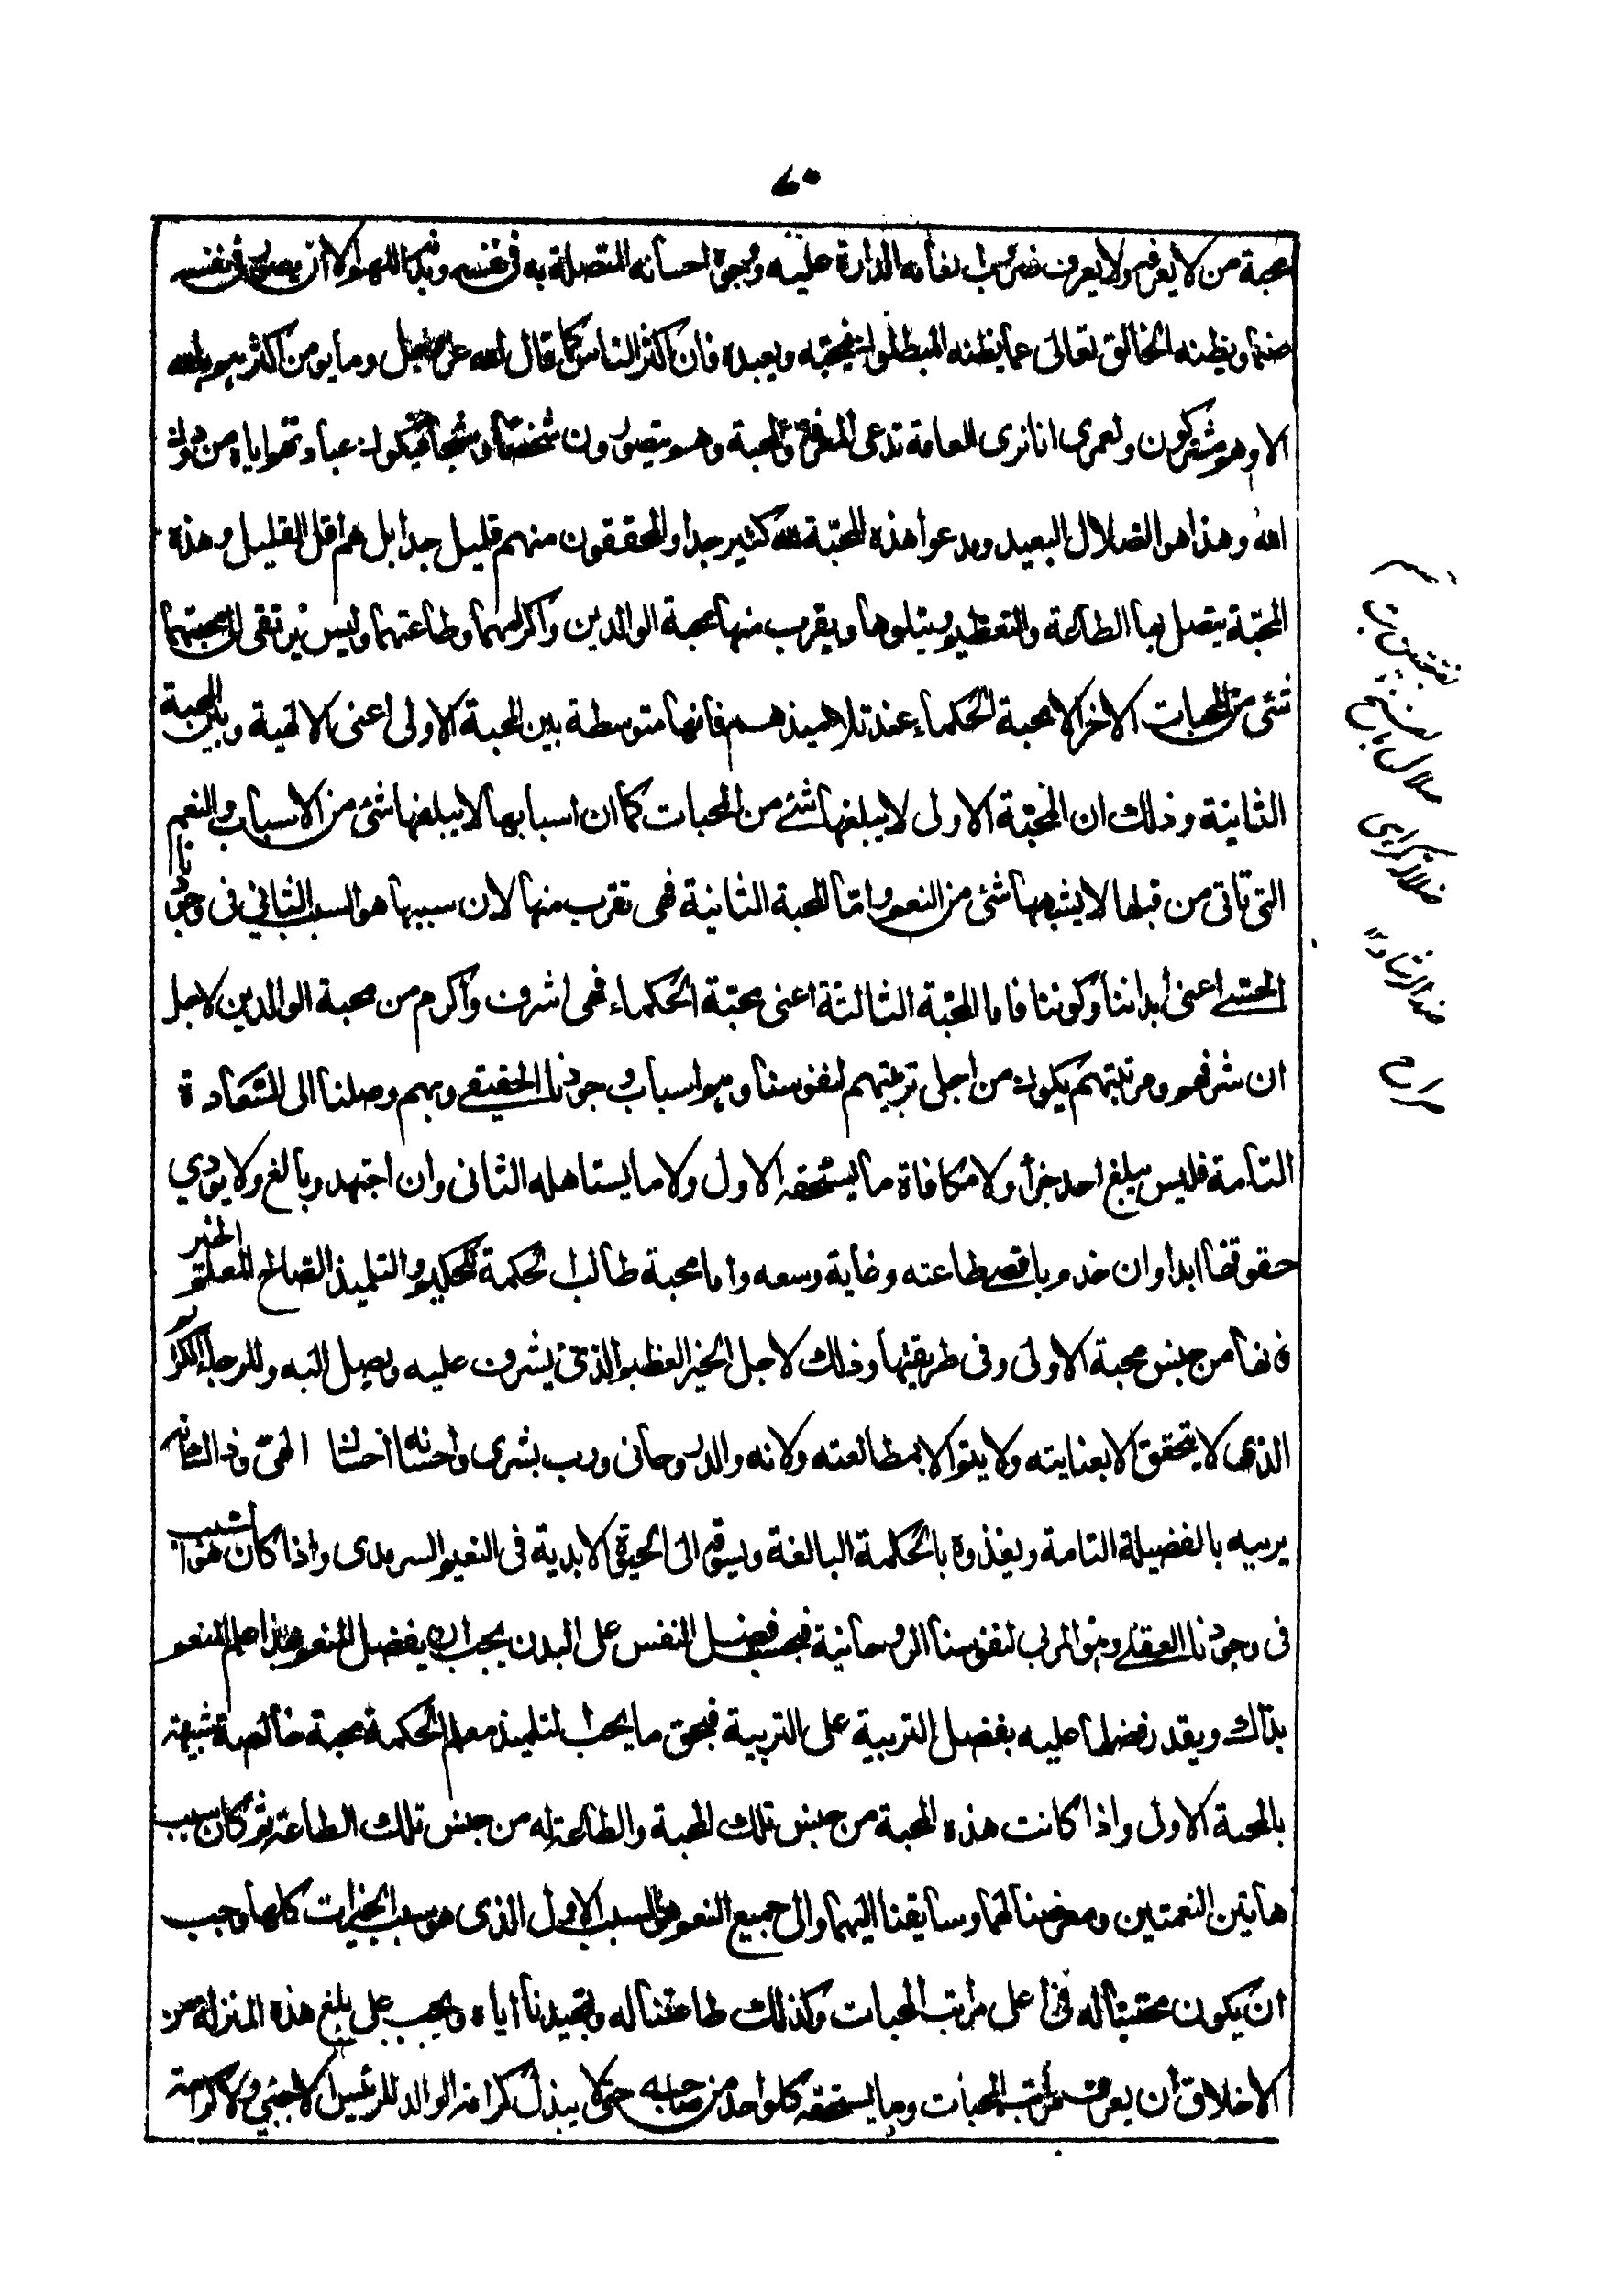 محبة من لا يعرفه ولا يعرف ضروب انعامه الدارة عليه ووجوه احسانه المتصلة به فى نفسه وبدنه اللهم الا ان يصور فى نفسه
صنما ويظنه الخالق تعالى عما يظنه المبطلون فيحبه ويعبده فان اكثر الناس كما قال الله عز وجل وما يومن اكثرهم بالله
الا وهم مشركون ولعمرى انا نرى العامة تدعى المعرفة والمحبة وهم يتصورون شخصا وشبحا فيكون عبادتهم اياه من دون
الله وهذا هو الضلال البعيد ومدعوا هذه المحبة لله كثير جدا والمحققون منهم قليل جدا بل هم اقل القليل وهذه
المحبة يتصل بها الطاعة والتعظيم ويتلوها ويقرب منها محبة الوالدين واكرامهما وطاعتهما وليس يرتقى الى محبتهما
شئ من المحبات الاخر الا محبة الحكماء عند تلاميذهم فانها متوسطة بين المحبة الاولى اعنى الالهية وبين المحبة
الثانية وذلك ان المحبة الاولى لا يبلغها شئ من المحبات كما ان اسبابها لا يبلغها شئ من الاسباب والنعم
التى تاتى من قبلها لا يشبهها شئ من النعم واما المحبة الثانية فهى تقرب منها لان سببها هو السبب الثانى فى وجودنا
الحسى اعنى ابداننا وكوننا فاما المحبة الثالثة اعنى محبة الحكماء فهى اشرف واكرم من محبة الوالدين لاجل
ان شرفهم ومرتبتهم يكون من اجل تربيتهم لنفوسنا وهم اسباب وجودنا الحقيقى وبهم وصلنا الى السعادة
التامة فليس يبلغ احد جزاء ولا مكافاة ما يستحقه الاول ولا ما يستاهله الثانى وان اجتهد وبالغ ولا يودي
حقوقها ابدا وان خدم باقصى طاعته وغاية وسعه واما محبة طالب الحكمة للحكيم والتلميذ الصالح للمعلم الخير
فانها من جنس محبة الاولى وفى طريقها وذلك لاجل الخير العظيم الذى يشرف عليه ويصل اليه وللرجاء الكريم
الذى لا يتحقق الا بعنايته ولا يتم الا بمطالعته ولانه والد روحانى ورب بشرى واحسانه احسان الهى وذلك انه
يربيه بالفضيلة التامة ويغذوه بالحكمة البالغة ويسوقه الى الحيوة الابدية فى النعيم السرمدى واذا كان هو السبب
فى وجودنا العقلى وهو المربى لنفوسنا الروحانية فبحسب فضل النفس على البدن يجب ان يفضل المنعم بهذا على المنعم
بذاك وبقدر فضلها عليه بفضل التربية على التربية فبحق ما يحب التلميذ معلم الحكمة محبة خالصة شبيهة
بالمحبة الاولى واذا كانت هذه المحبة من جنس تلك المحبة والطاعة له من جنس تلك الطاعة ثم كان سبب
هاتين النعمتين ومعرضنا لهما وسايقنا اليهما والى جميع النعم هو السبب الاول الذى هو سبب الخيرات كلها وجب
ان يكون محبتنا له فى اعلى مراتب المحبات وكذلك طاعتنا له وتمجيدنا اياه ويجب على من يبلغ هذه المنزلة من
الاخلاق ان يعرف مراتب المحبات وما يستحقه كل واحد من صاحبه حتى لا يبذل كرامة الوالد للرئيس الاجنبى ولا كرامة